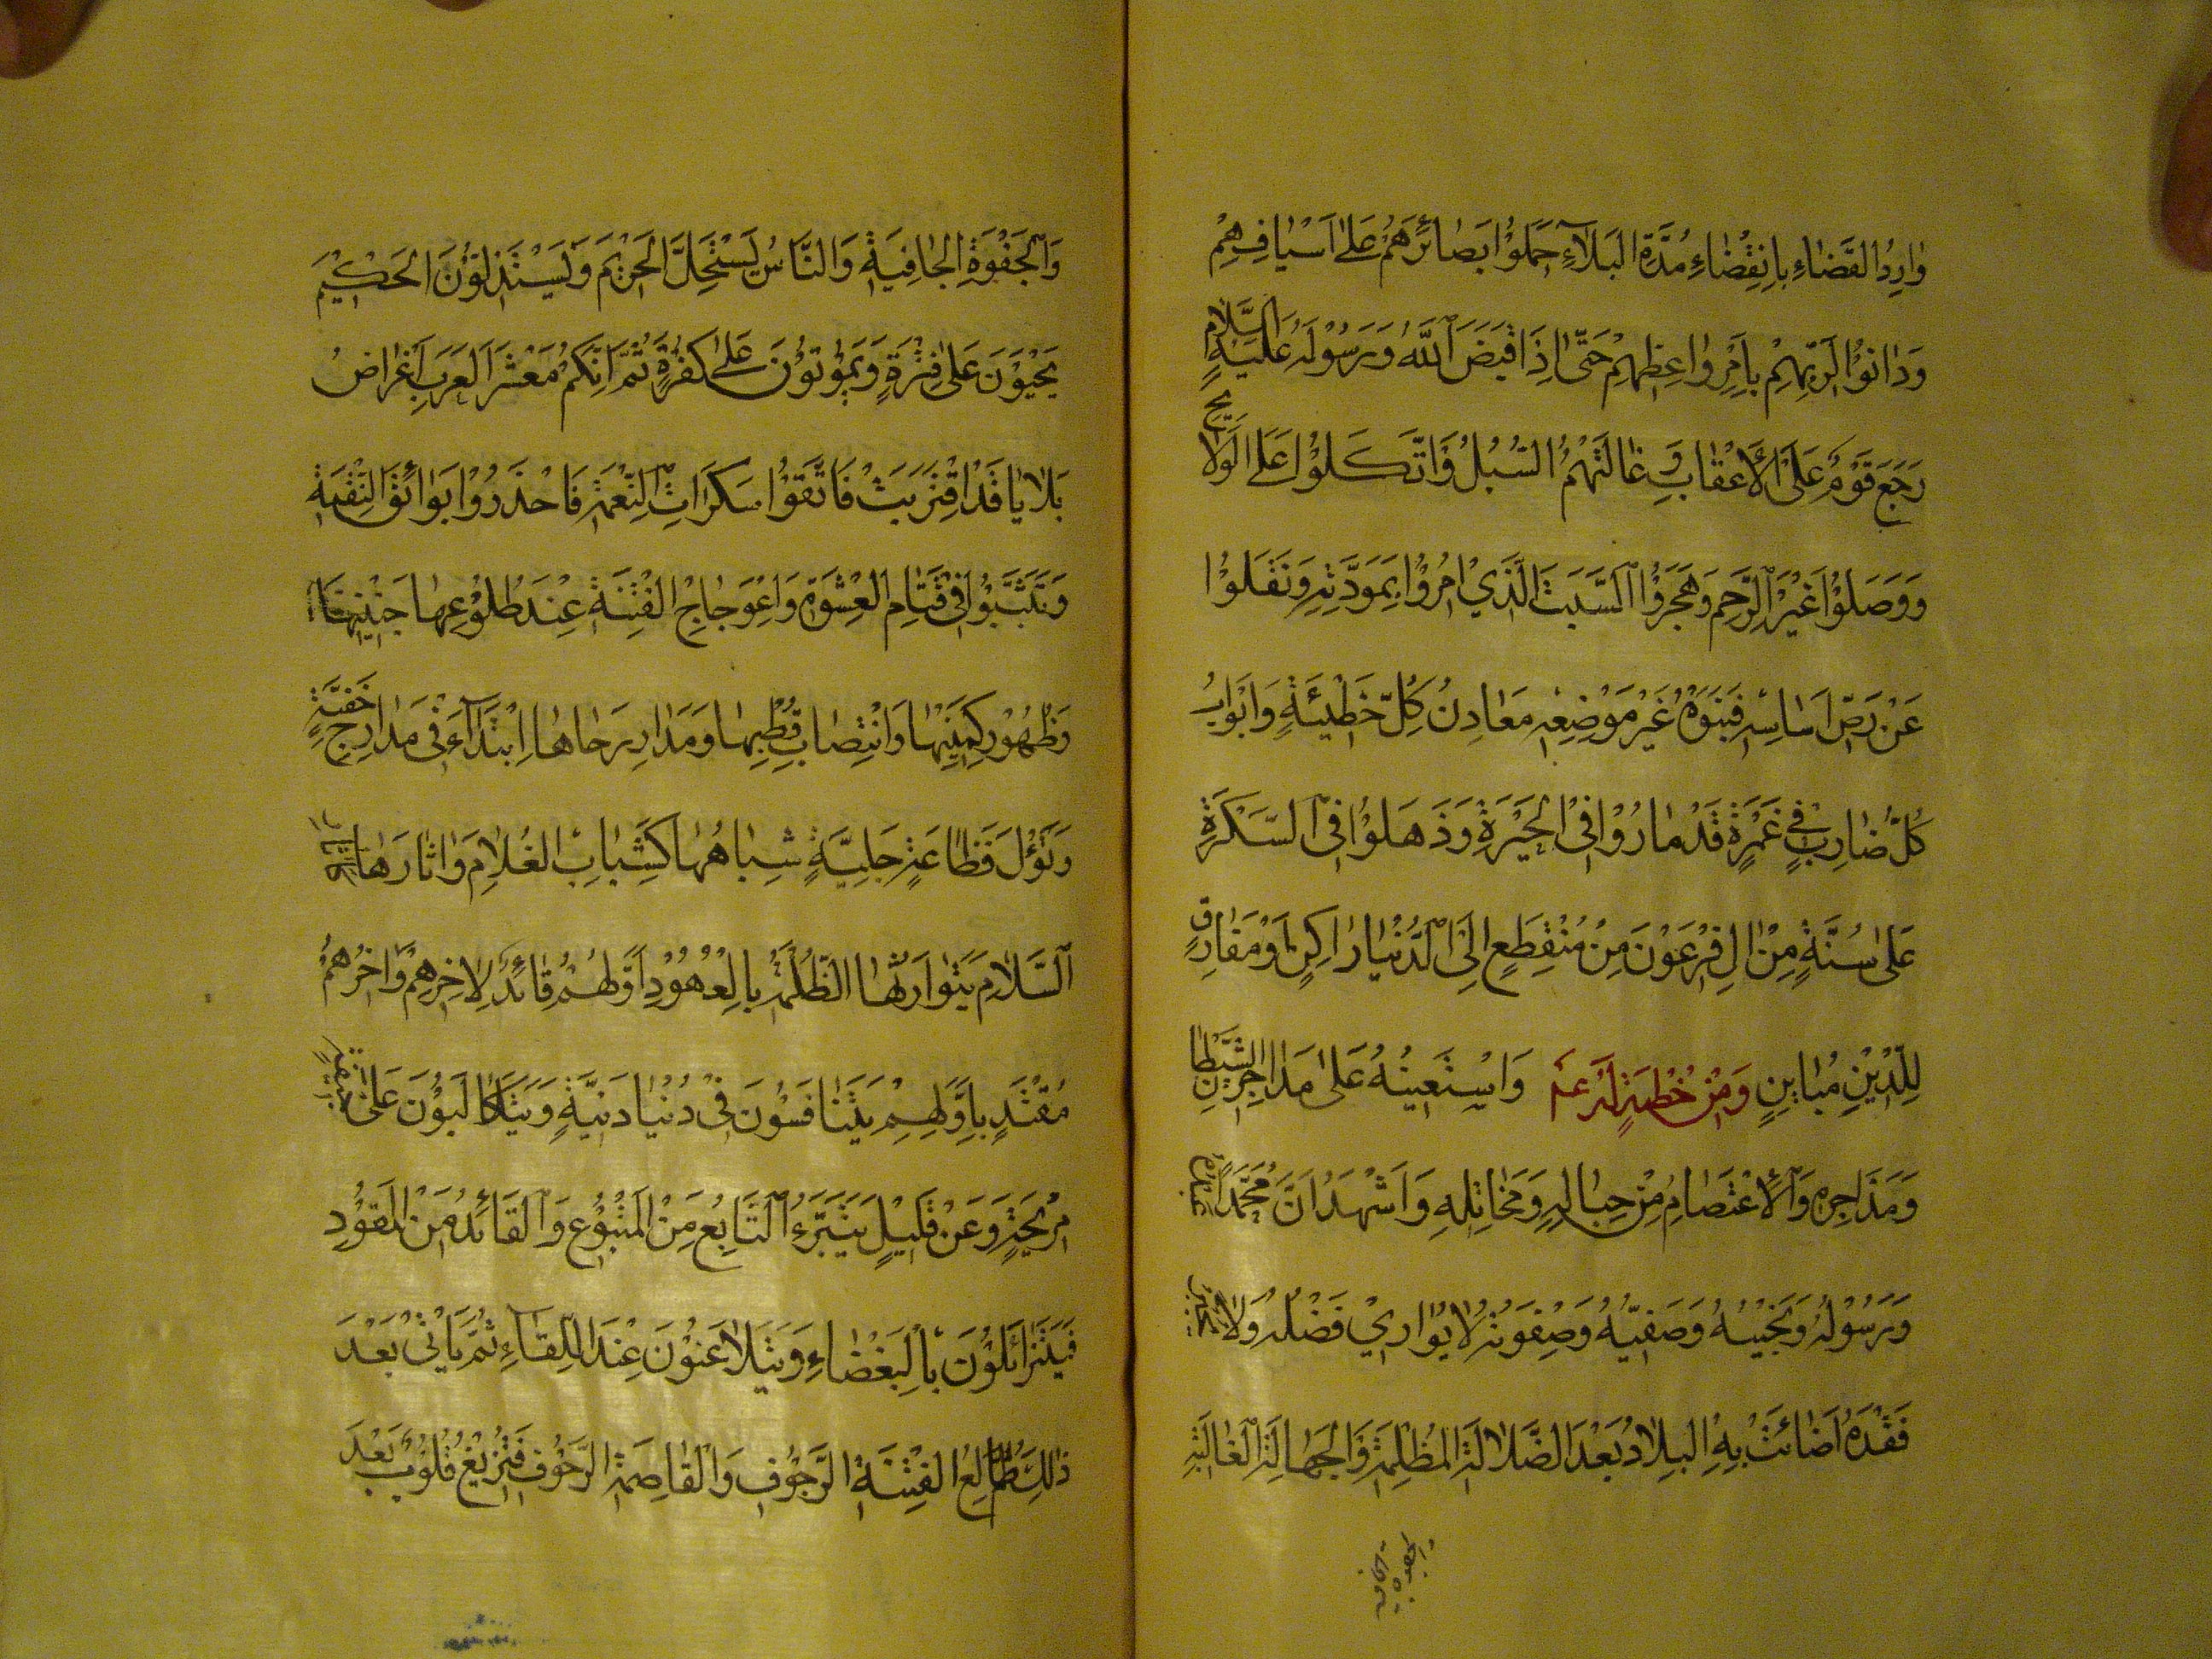 وٰارِدُ القَضٰاءِ بِانقِضٰاءِ مُدَّةِ البَلآءِ حَمَلوُا بَصٰائِرَهُم عَلىٰ اَسْيٰافِهِمْ
وَدٰانوُا لِرَبِّهِمْ بِاَمْرِ وٰاعِظِهِمْ حَتّىٰ اِذَا قَبَضَ اللّٰهُ وَرَسُوْلَهُ عَلَيْهِ السَّلامِ
رَجَعَ قَوْمٌ عَلَى الْاَعْقٰابِ وَ غٰالَتْهُمُ السُّبُلُ وَاتَّكَلوُا عَلَى الوَلايجِ
وَوَصَلوُا غَيْرَ الرَّحِمِ وَهَجَرُوْا السَّبَبَ الَّذيْ اُمِرُوْا بِمَوَدَّتِهِ وَنَقَلوُا
عَنْ رَصِّ اَسٰاسِهِ فَبَنَوْهُ غَيْرَ مَوْضِعِهِ مَعٰادِنُ كُلِّ خَطْيئَةٍ وَاَبْوَابُ
كُلِّ ضٰارِبٍ فِي غَمْرَةٍ قَدْ مٰارُوْا فِى الْحَيْرَةِ وَذَهَلوُا فِى السَّكْرَةِ
عَلىٰ سُنَّةٍ مِنْ اٰلِ فِرْعَوْنَ مِنْ مُنْقِطَعٍ اِلَى الدُّنْيٰا رٰاكِنٍ اَوْ مَفٰارِقٍ
لِلدّيْنِ مُبٰايِنٍ وَمِنْ خُطْبَةٍ لَهُ عم وَاَسْتَعينُهُ عَلىٰ مَدٰاحِرِ الشَّيْطٰانِ
وَمَزٰاجِرِهِ وَالْاِعْتَصٰامِ مِنْ حِبٰالِهِ وَمَخٰاتِلِهِ وَاَشْهَدُ اَنَّ مُحَمَّدًا عَبْدُهُ
وَرَسُوْلُهُ وَنَجْيبُهُ وَصَفِيُّهُ وَصِفوَتُهُ لا يُوٰازيْ فَضْلُهُ وَلا يُجْبَرُ
فَقْدُهُ اَضٰائَتْ بِهِ البِلادُ بَعْدَ الضَّلالَةِ المُظْلِمَةِ وَالجَهٰالَةِ الغٰالِبَةِ
والجفوة الجافية
وَالْجَفْوَةِ الجٰافِيَةِ وَالنّاسُ يَسْتَحِلُّ الْحَريْمَ وَيَسْتَذِلّوُنَ الحَكْيمَ
يَحْيَوْنَ عَلىٰ فَتْرَةٍ وَيَمُوْتوُنَ عَلىٰ كَفْرَةٍ ثُمَّ اِنَّكُمْ مَعْشَرَ العَرَبِ اَغْرٰاضُ
بَلايٰا قَدْ اقتَرَبَتْ فَاتَّقوُا سَكَرٰاتِ النِّعْمَةِ فَاحْذَرُوْا بَوٰائِقَ النِقْمَةِ
وَتَثَبَّتوُا فِى قَتٰامِ العِشْوَةِ وَاعْوِجٰاجِ الفِتْنَةِ عِنْدَ طُلوُعِهٰا جَنْينِهٰا
وَظُهُوْرِ كَمْينِهٰا وَانْتِصٰابِ قُطْبِهٰا وَمَدٰارِ رَحٰاهٰا اِبْتَدَآءَ فِى مَدٰارِجَ خَفِيَّةٍ
وَتَؤُلُ فَظٰاعَةٍ جَلِيَّةٍ شِبٰاهُهٰا كَشَبٰابِ الغُلامِ وَاٰثٰارَهٰا كَاٰثٰارِ
السَّلامِ يَتَوٰارَثُهٰا الظَّلَمَةُ بِالْعُهوُدِ اَوَّلهُمْ قٰائِدٌ لِاٰخِرِهِمْ وَاٰخِرُهُمْ
مُقْتَدٍ بِاَوَّلِهِمْ يَتَنٰافَسُوْنَ فِيْ دُنْيٰا دَنِيَّةٍ وَيَتَكٰالَبُوْنَ عَلىٰ جيفَةٍ
مُرْيْحَةٍ وَعَنْ قَليْلٍ يَتَبَرَّءُ التّٰابِعُ مِنَ الْمَتْبُوْعِ وَالْقٰائِدُ مِنَ الْمَقوُدِ
فَيَتَزٰائَلوُنَ بِالْبَغْضٰاءِ وَيَتَلاعَنوُنَ عِنْدَ اللِّقٰاءِ ثُمَّ يَأتيْ بَعْدَ
ذٰلِكَ طٰالِعُ الفِتْنَةِ الرَّجُوْفِ وَالْقٰاصِمَةِ الزَّحُوْفِ فَتَزيْغُ قُلُوْبٌ بَعْدَ